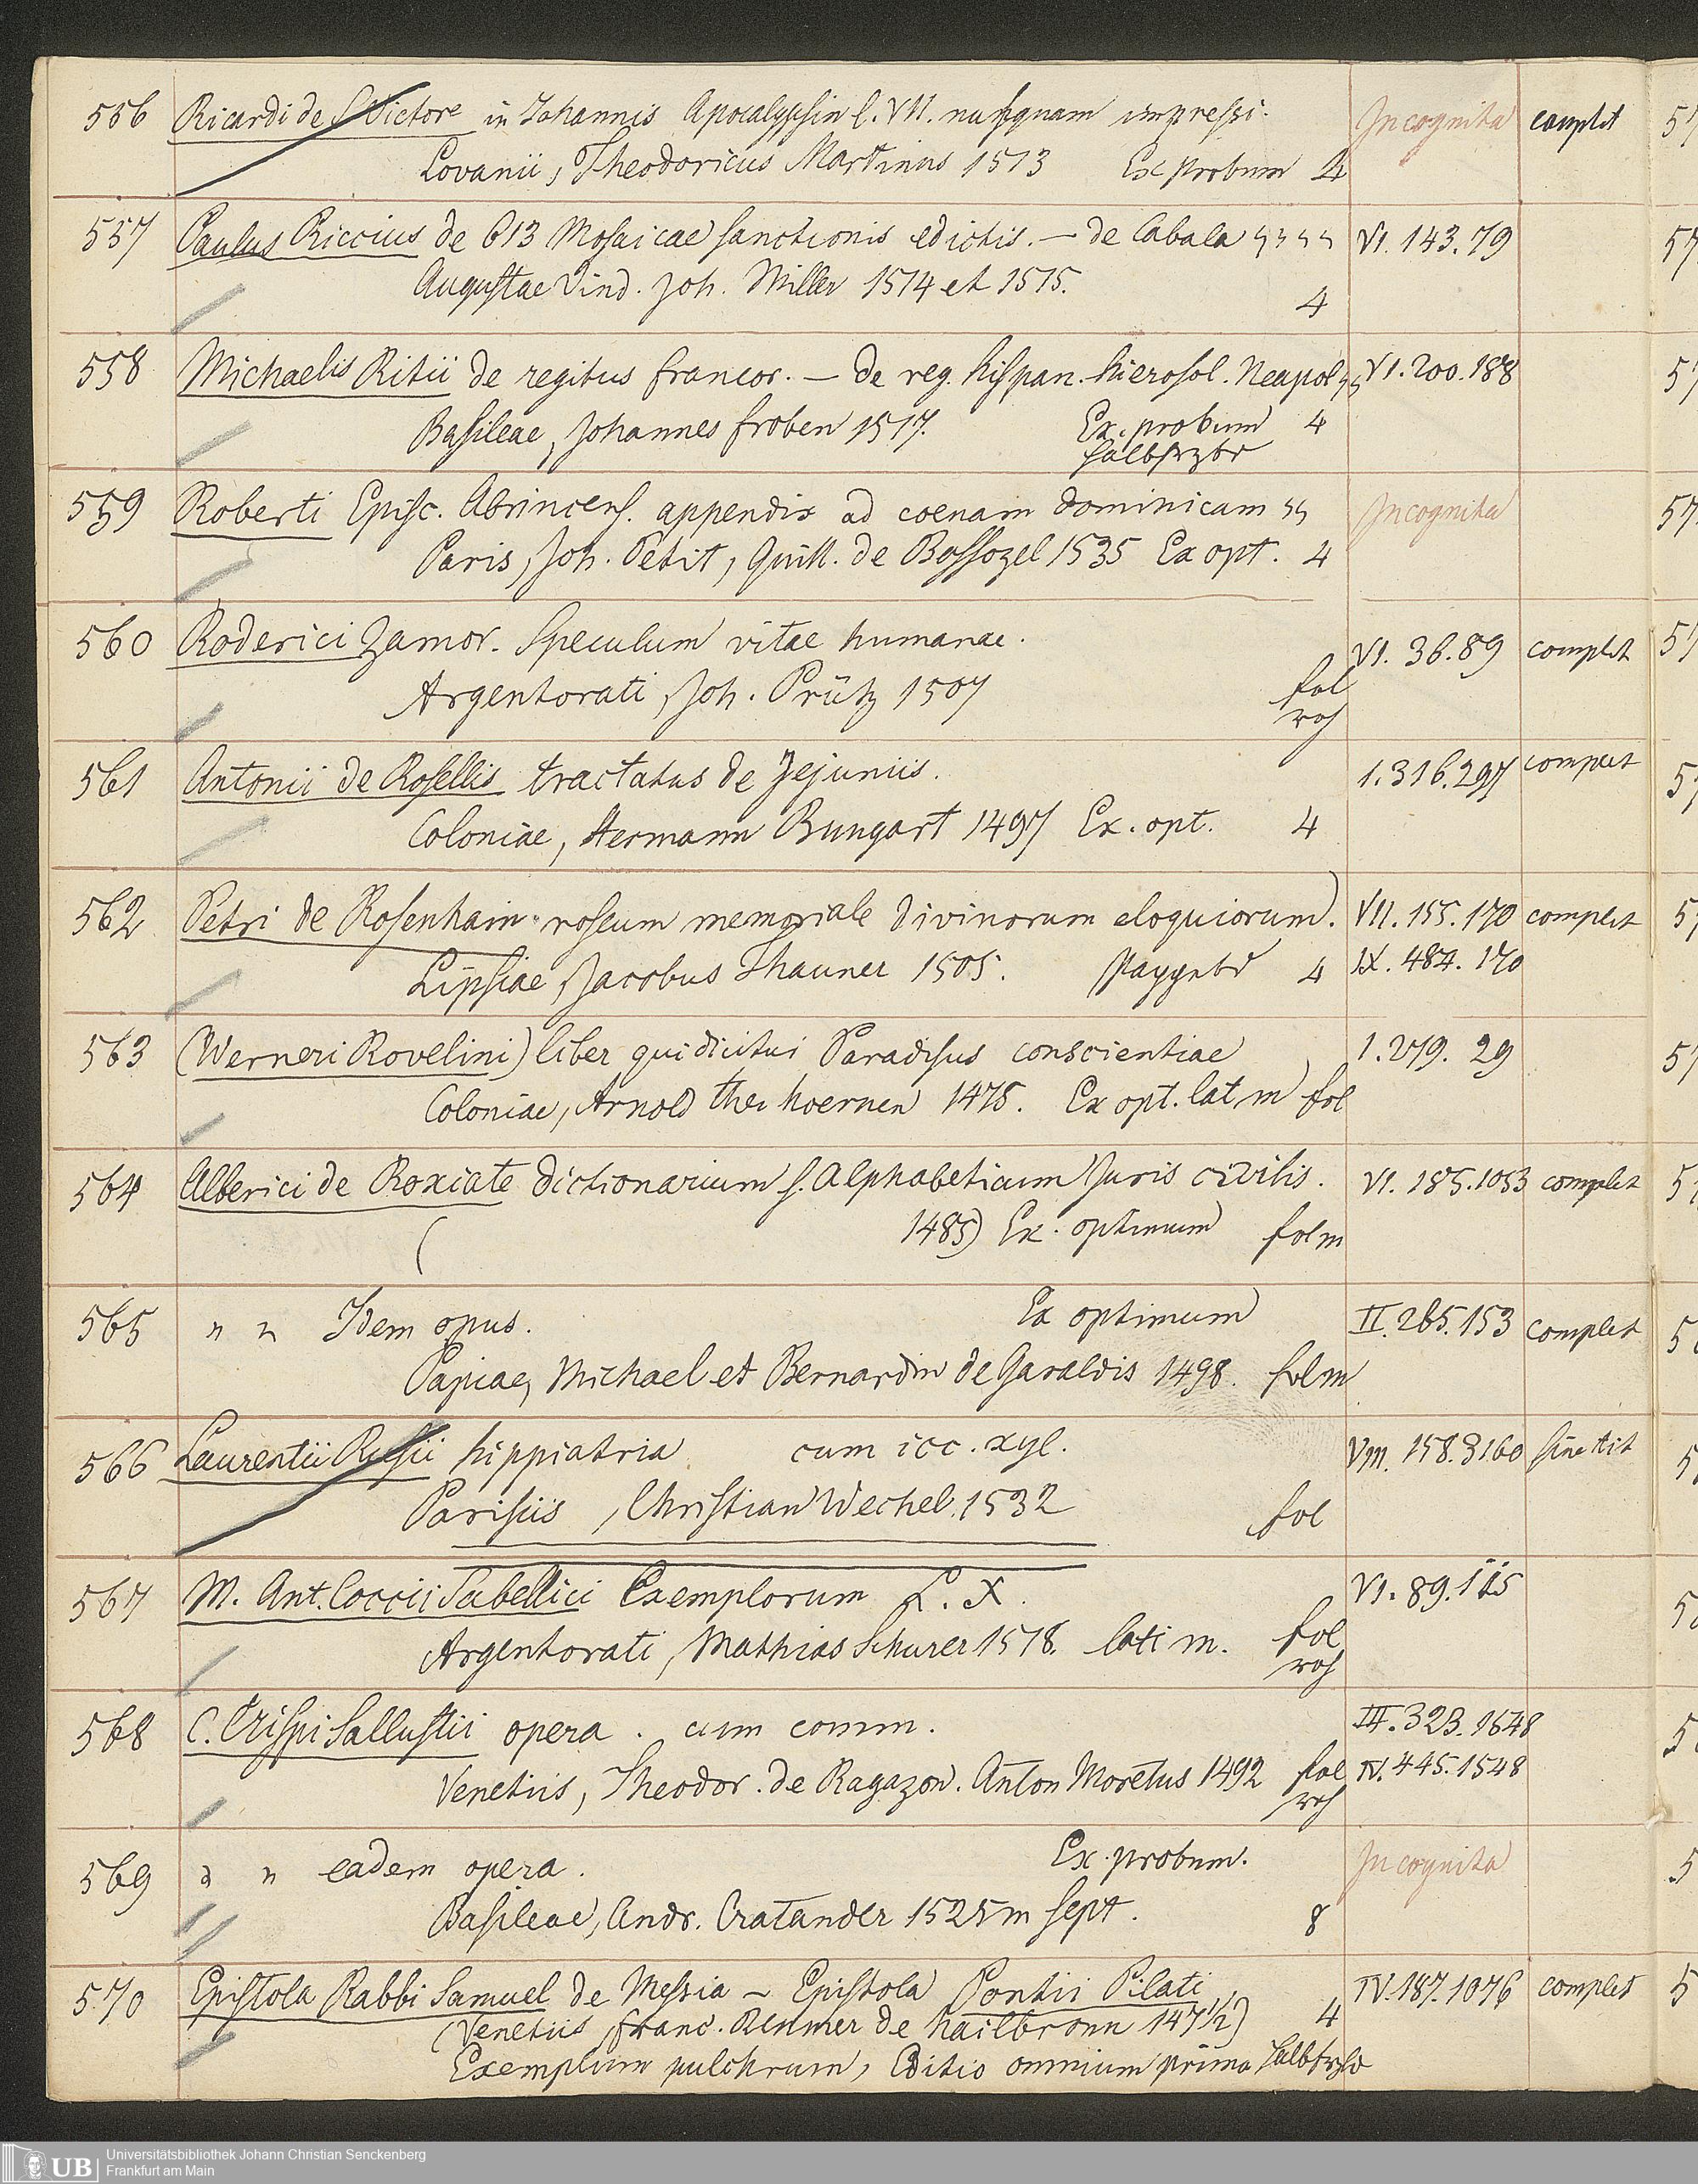 556 Ricardi de S Victore in Johannis Apocalypsin l. VII. nusquam impressi. Incognita complet
Lovanii, Theodoricus Martinus 1513 Ex probum 4
557 Paulus Riccius de 613 Mosaicae sanctionis edictis. — de Cabala VI. 143. 79
Augustae Vind. Joh. Miller 1514 et 1515. 4
558 Michaelis Ritii de regibus francor. — de reg. hispan. hierosol. Neapol VI. 200. 188
Basileae, Johannes Froben 1517. Ex. probum 4
halbfrzbd
559 Roberti Episc. Abrincens. appendix ad coenam dominicam Incognita
Paris, Joh. Petit, Guill. de Bossozel 1535 Ex opt. 4
560 Roderici Zamor. Speculum vitae humanae. VI. 36. 89 complet
Argentorati, Joh. Prütz 1507 fol
roh
561 Antonii de Rosellis tractatus de Jejuniis. 1. 316. 297 complet
Coloniae, Hermann Bungart 1497 Ex. opt. 4
562 Petri de Rosenhain roseum memoriale divinorum eloquiorum. VII. 155. 170 complet
Lipsiae, Jacobus Thanner 1505. Pappbd 4 IX. 484. 170
563 (Werneri Rovelini) liber qui dicitur Paradisus conscientiae 1. 279. 29
Coloniae, Arnold ther hoernen 1475. Ex opt. lat m fol
564 Alberici de Roxiate dictionarium s. Alphabeticum Juris civilis. VI. 185. 1053 complet
( 1485) Ex. optimum fol m
565 " " Idem opus. Ex optimum II. 265. 153 complet
Papiae, Michael et Bernardin de Garaldis 1498. fol m
566 Laurentii Rusii hippiatria cum icc. xyl. VIII. 158. 3160 sine tit
Parisiis, Christian Wechel. 1532 fol
567 M. Ant. Coccii Sabellici Exemplorum L. X. VI. 89. 185
Argentorati, Mathias Schurer 1518. lati m. fol
roh
568 C. Crispi Sallustii opera. cum comm. III. 323. 1648
Venetiis, Theodor. de Ragazon. Anton Moretus 1492 fol IV. 445. 1548
roh
569 " " eadem opera. Ex. probum. Incognita
Basileae, Andr. Cratander 1525 m sept. 8
570 Epistola Rabbi Samuel de Messia — Epistola Pontii Pilati IV. 187. 1076 complet
(Venetiis, franc. Renner de Hailbronn 147½) 4
Exemplum pulchrum, Editio omnium prima halbfrzbd
Universitätsbibliothek Johann Christian Senckenberg
Frankfurt am Main
UB